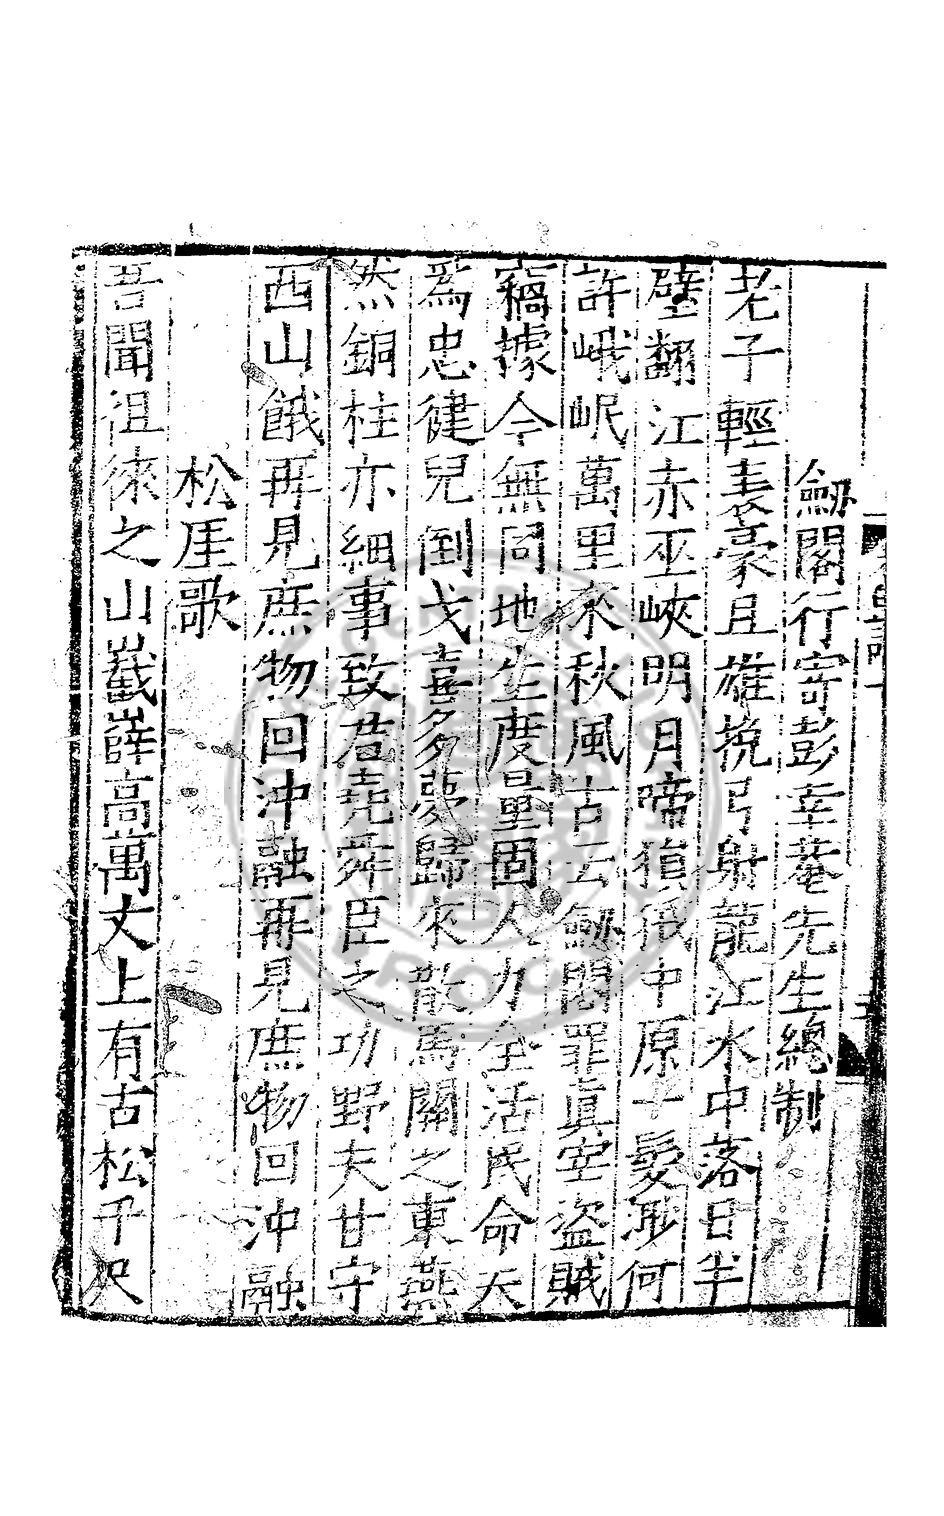 劔閣行寄彭幸菴先生總制
老子輕裘豪且雄挽弓射龍江水中落日半
壁翻江赤巫峽明月啼猿狖中原一髮渺何
許峨岷萬里來秋風古云劔閣罪眞宰盜賊
竊據今無同地坐度量固人力全活民命天
爲忠徤兒倒戈喜多夢歸來散馬關之東燕
然銅柱亦細事致君堯舜臣之功野夫甘守
西山餓再見庶物回沖融再見庶物回沖融
松厓歌
昔聞徂徠之山嶻嶭高萬丈上有古松千尺